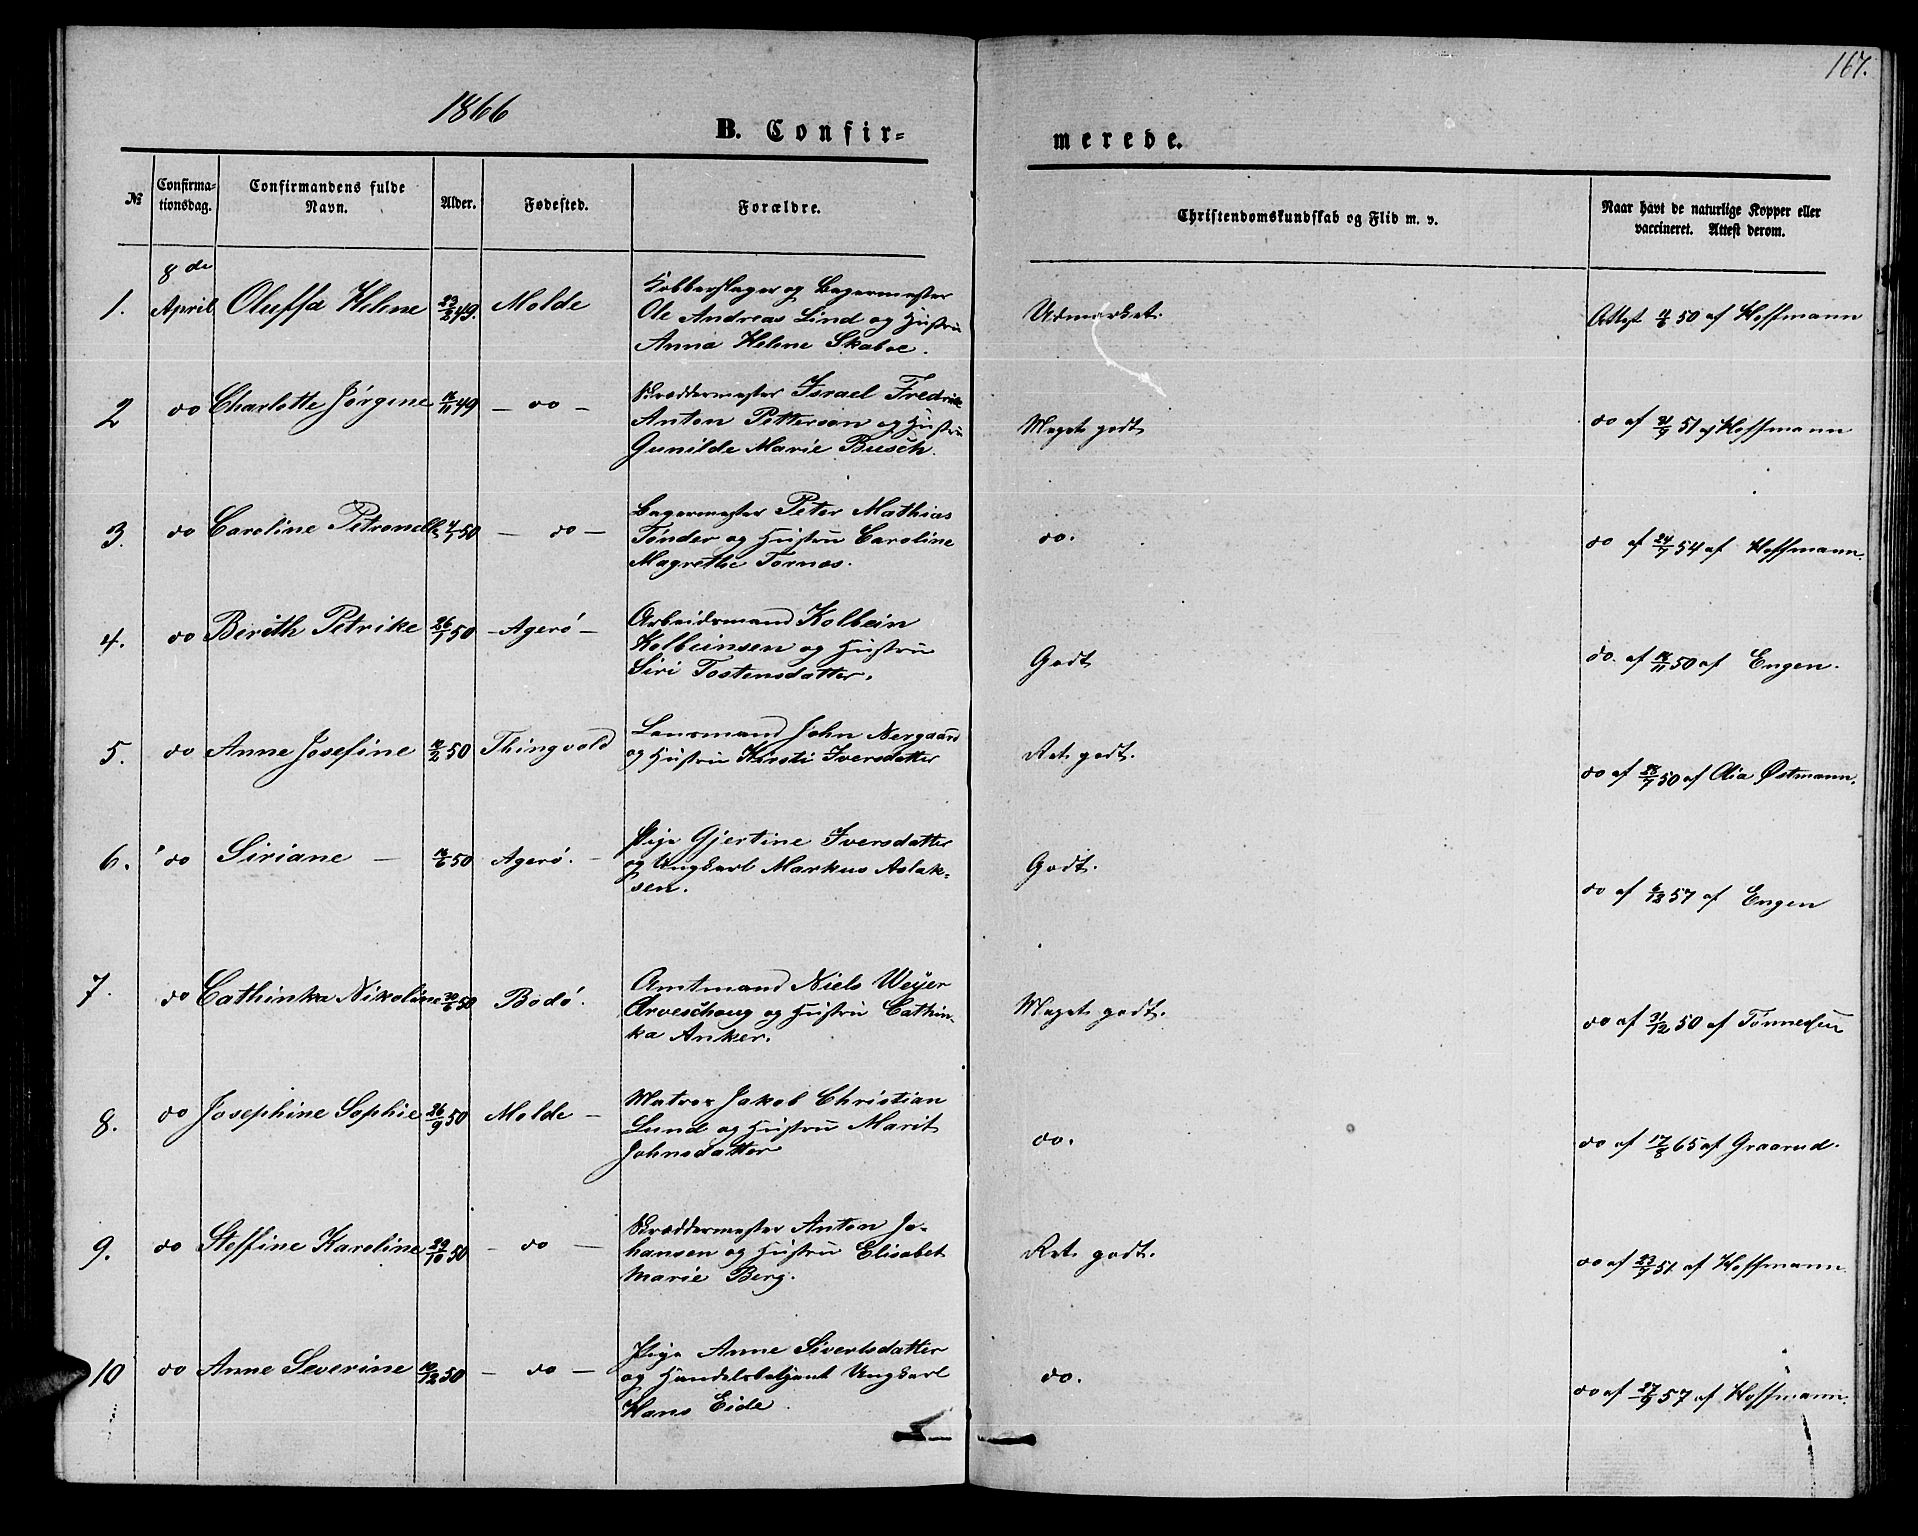 167.
1866
B. Confir-
merede.
№
Confirma-
tionsdag.
Confirmandens fulde
Navn.
Alder.
Fødested.
Forældre.
Christendomskundskab og Flid m. v.
Naar havt de naturlige Kopper eller
vaccineret. Attest derom.
1. 8de April Oluffa Helene 23/2 49. Molde
Kobberslager og Bagermester
Ole Andreas Lind og Hustru
Anna Helene Skaboe.
Udmærket.
Attest 50 af Hoffmann
2 do Charlotte Jørgine 49 - do -
Skræddermester Israel Fredrik
Anton Petterson og Hustru
Gunilde Marie Busch.
Meget godt
do af 51 af Hoffmann
3. do Caroline Petronelle 50 - do -
Bagermester Peter Mathias
Tønder og Hustru Caroline
Magrethe Tornæs.
do.
do af 24/7 54 af Hoffmann.
4. do Bereth Petrike 26/1 50 - Agerö -
Arbeidsmand Kolbein
Kolbeinsen og Hustru
Siri Tostensdatter.
Godt
do. af 50 af Engen.
5. do Anne Josefine 50 Thingvold
Lensmand John Nergaard
og Hustru Kirsti Iversdatter
Ret godt.
do af 50 af Østmann.
6. do Siriane - 50 Agerö. -
Pige Gjertine Iversdatter
og Ungkarl Markus Aslak-
sen.
Godt.
do af 57 af Engen
7. do Cathinka Nikoline 50 Bodö.
Amtmand Niels Weyer
Arveschoug og Hustru Cathin-
ka Anker.
Meget godt.
do af 31/12 50 af Tönnesen
8. do Josephine Sophie 26/9 50 Molde -
Matros Jakob Christian
Lund og Hustru Marit
Johnsdatter
do.
do af 17/8 65 af Graarud.
9. do Steffine Karoline 29/10 50 - do -
Skræddermester Anton Jo-
hansen og Hustru Elisabet
Marie Berg.
Ret godt.
do af 23/7 51 af Hoffmann
10 do Anne Severine 50 - do -
Pige Anne Sivertsdatter
og Handelsbetjent Ungkarl
Hans Eide.
do.
do af 27/9 57 af Hoffmann.